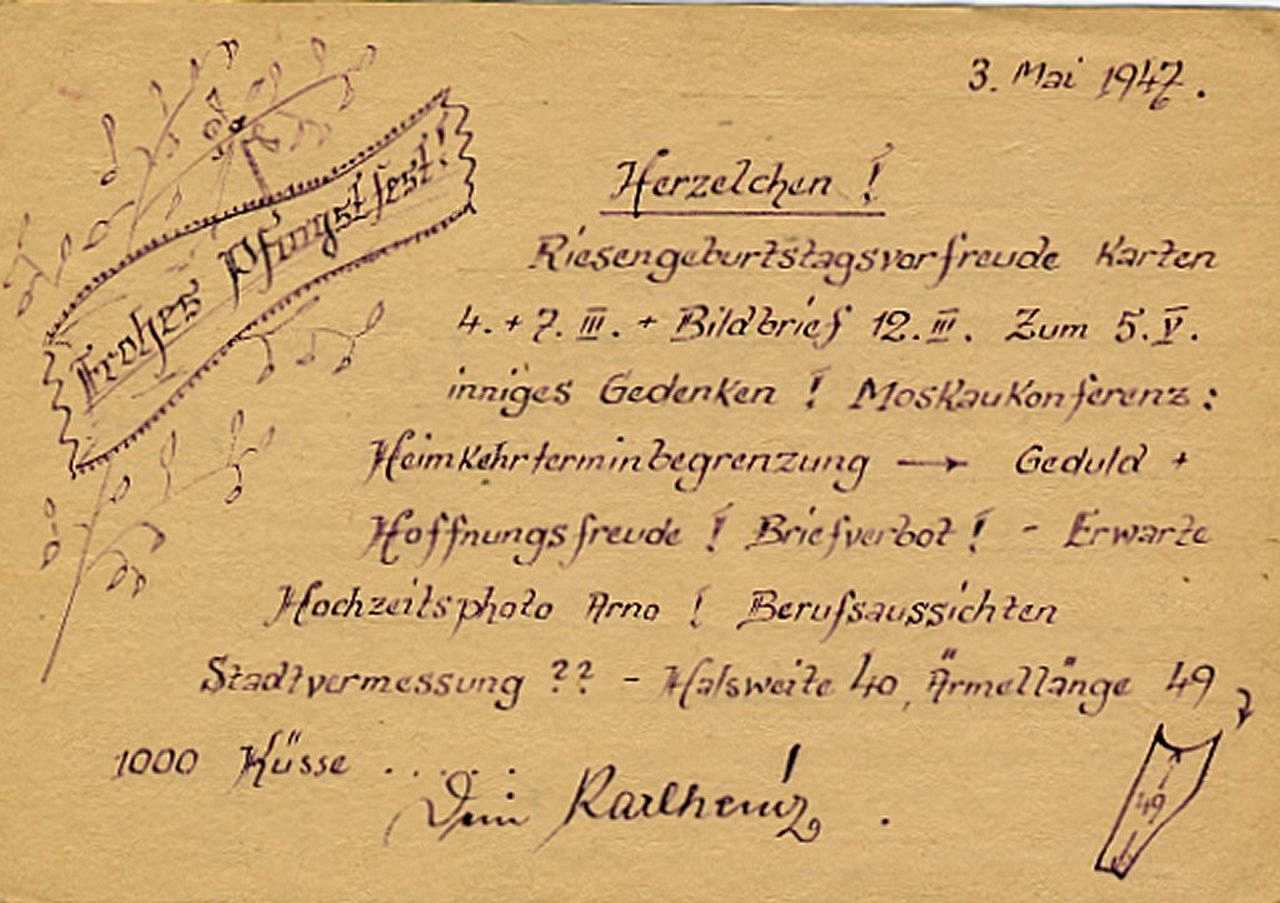 3. Mai 1947.
Frohes Pfingstfest!
Herzelchen!
Riesengeburtstagsvorfreude Karten
4. + 7. III. + Bildbrief 12. III. Zum 5. V.
inniges Gedenken! Moskaukonferenz:
Heimkehrterminbegrenzung → Geduld +
Hoffnungsfreude! Briefverbot! - Erwarte
Hochzeitsphoto Arno! Berufsaussichten
Stadtvermessung ?? - Halsweite 40, Ärmellänge 49
1000 Küsse .....!
Dein Karlheinz.
49